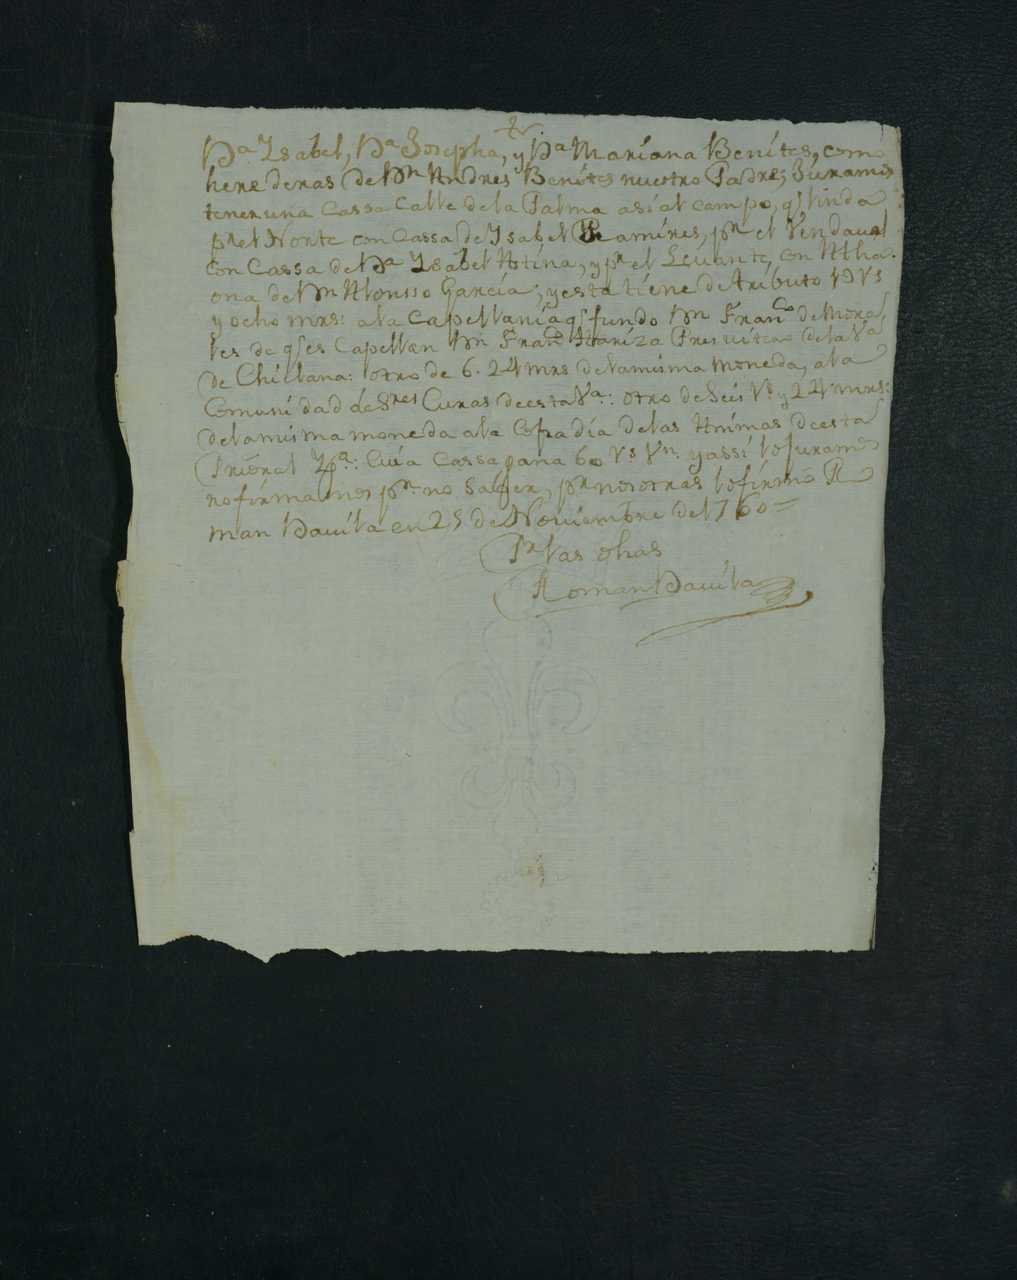 Da. Ysabel, Da Josepha, y Da Mariana Benites, como
herederas de Dn Andres Benites nuestro Padre, Juramos
tener una Cassa Calle de la Palma asi al campo, q linda
pr el Norte con Cassa de Ysabel Ramires, pr el Vendaval
con Cassa de Da Ysabel Atina, y pr el Levante, con Atha
ona de Dn Alonsso Garcia; y esta tiene de tributo 19 rs
y ocho mrs: a la Capellania q fundo Dn Franco de Mora
les de q es Capellan Dn Franco Presvitero de la Va
de Chiclana: otro de 6. 24 mrs de la misma moneda, a la
Comunidad de Sres Curas de esta Va: otro de Seis rs y 24 mrs:
de la misma moneda a la Cofradia de las Animas de esta
Prioral Ygla: Cuia Cassa gana 60 rs Vn y assi lo juramos
no firmamos pr no saber, pr nosotras lo firmó Ro
man Davila en 25 de Noviembre de 1760=
Pr las dhas
Roman Davila